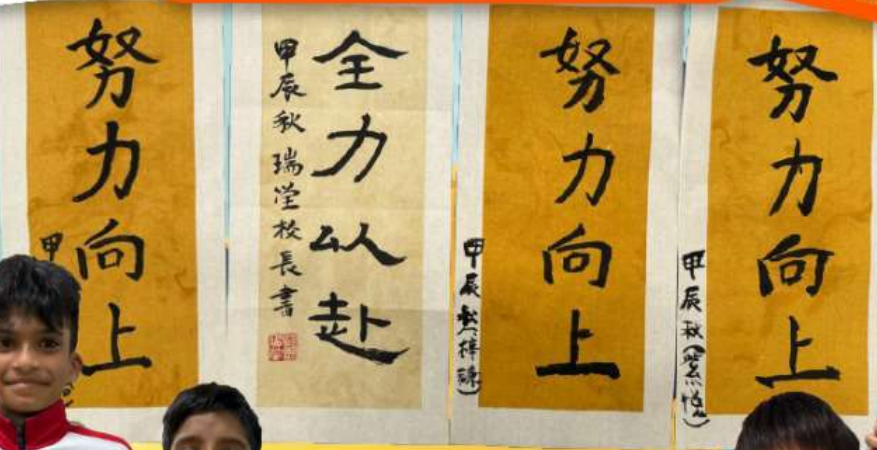 努力向上
甲
全力以赴
甲辰秋 瑞瑩校長書
努力向上
甲辰
努力向上
甲辰秋(紫悅)